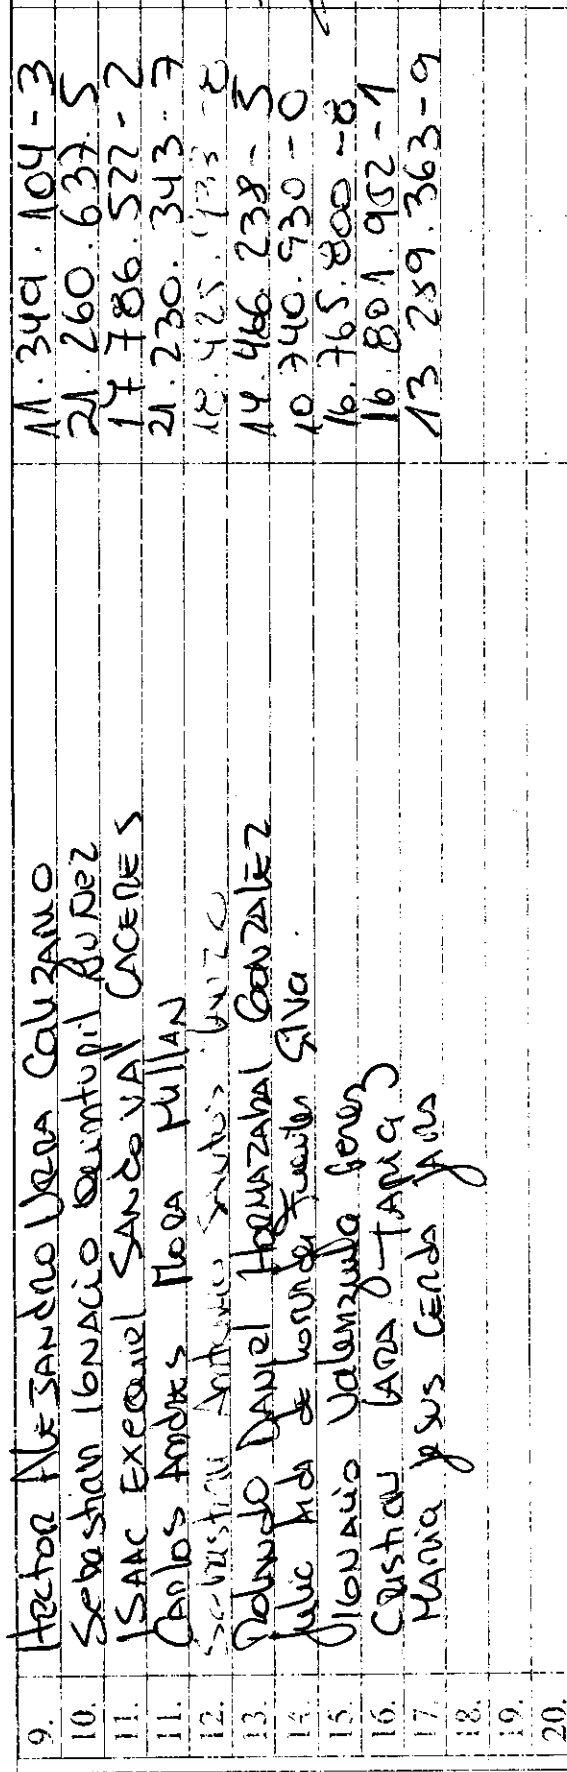 9. Hector Alejandro Vera Cauzano 11.349.104-3
10. Sebastian Ignacio Quintupil Nuñez 21.260.637.5
11. Isaac Exequiel Sandoval Caceres 17.786.522-2
11. Carlos Andres Mora Millan 21.230.343-7
12. Sebastian Antonio
13. Rolando Daniel Hormazabal Gonzalez 14.466.238-5
14. de Lourdes Fuentes Silva. 10.740.930-0
15. Ignacio Valenzuela Perez 16.765.800-8
16. Cristian Lara Tapia 16.801.952-1
17. Maria Jesus Cerda Jara 13.259.363-9
18.
19.
20.